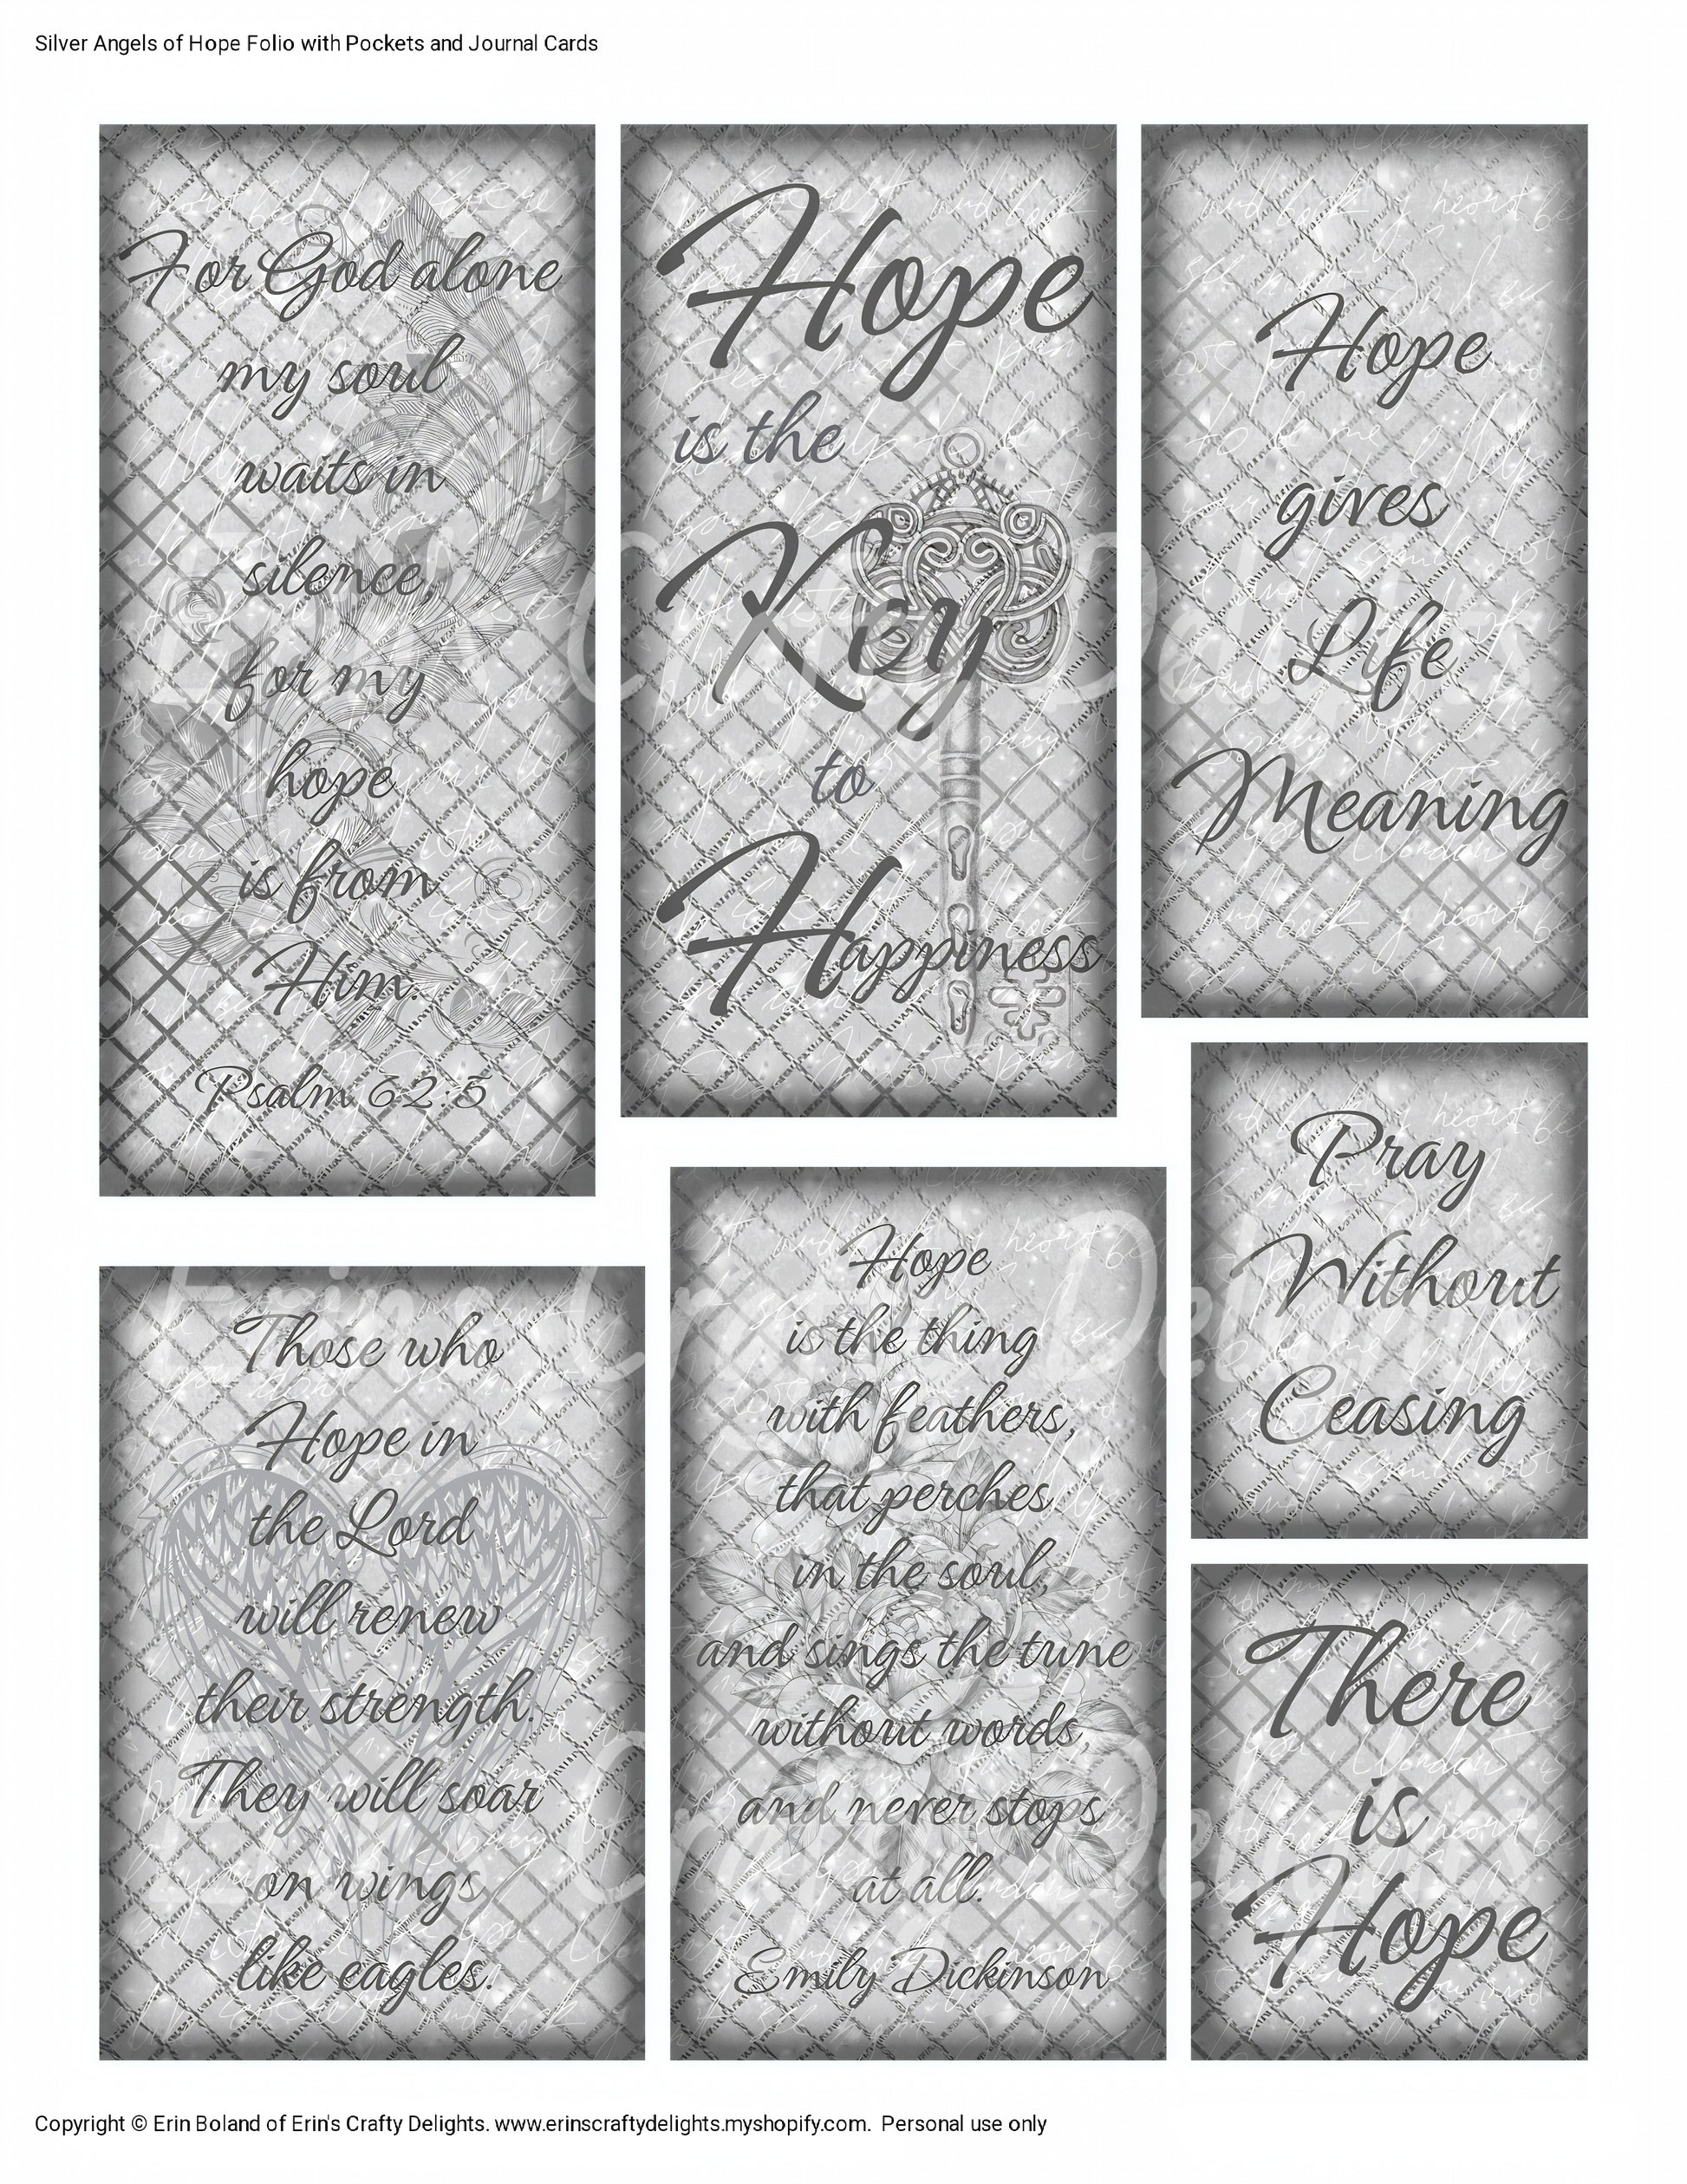 Silver Angels of Hope Folio with Pockets and Journal Cards
For God alone
my soul
waits in
silence,
for my
hope
is from
Him.
Psalm 62:5
Hope
is the
Key
to
Happiness
Hope
gives
Life
Meaning
Pray
Without
Ceasing
Those who
Hope in
the Lord
will renew
their strength.
They will soar
on wings
like eagles.
Hope
is the thing
with feathers,
that perches
in the soul,
and sings the tune
without words,
and never stops
at all.
Emily Dickinson
There
is
Hope
Erin's Crafty Delights
Erin's Crafty Delights
Erin's Crafty Delights
Copyright © Erin Boland of Erin's Crafty Delights. www.erinscraftydelights.myshopify.com. Personal use only